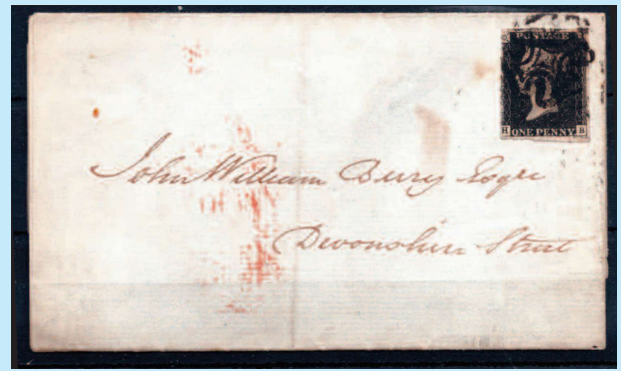 POSTAGE
H ONE PENNY B
John William Berry Esqre
Devonshire Street